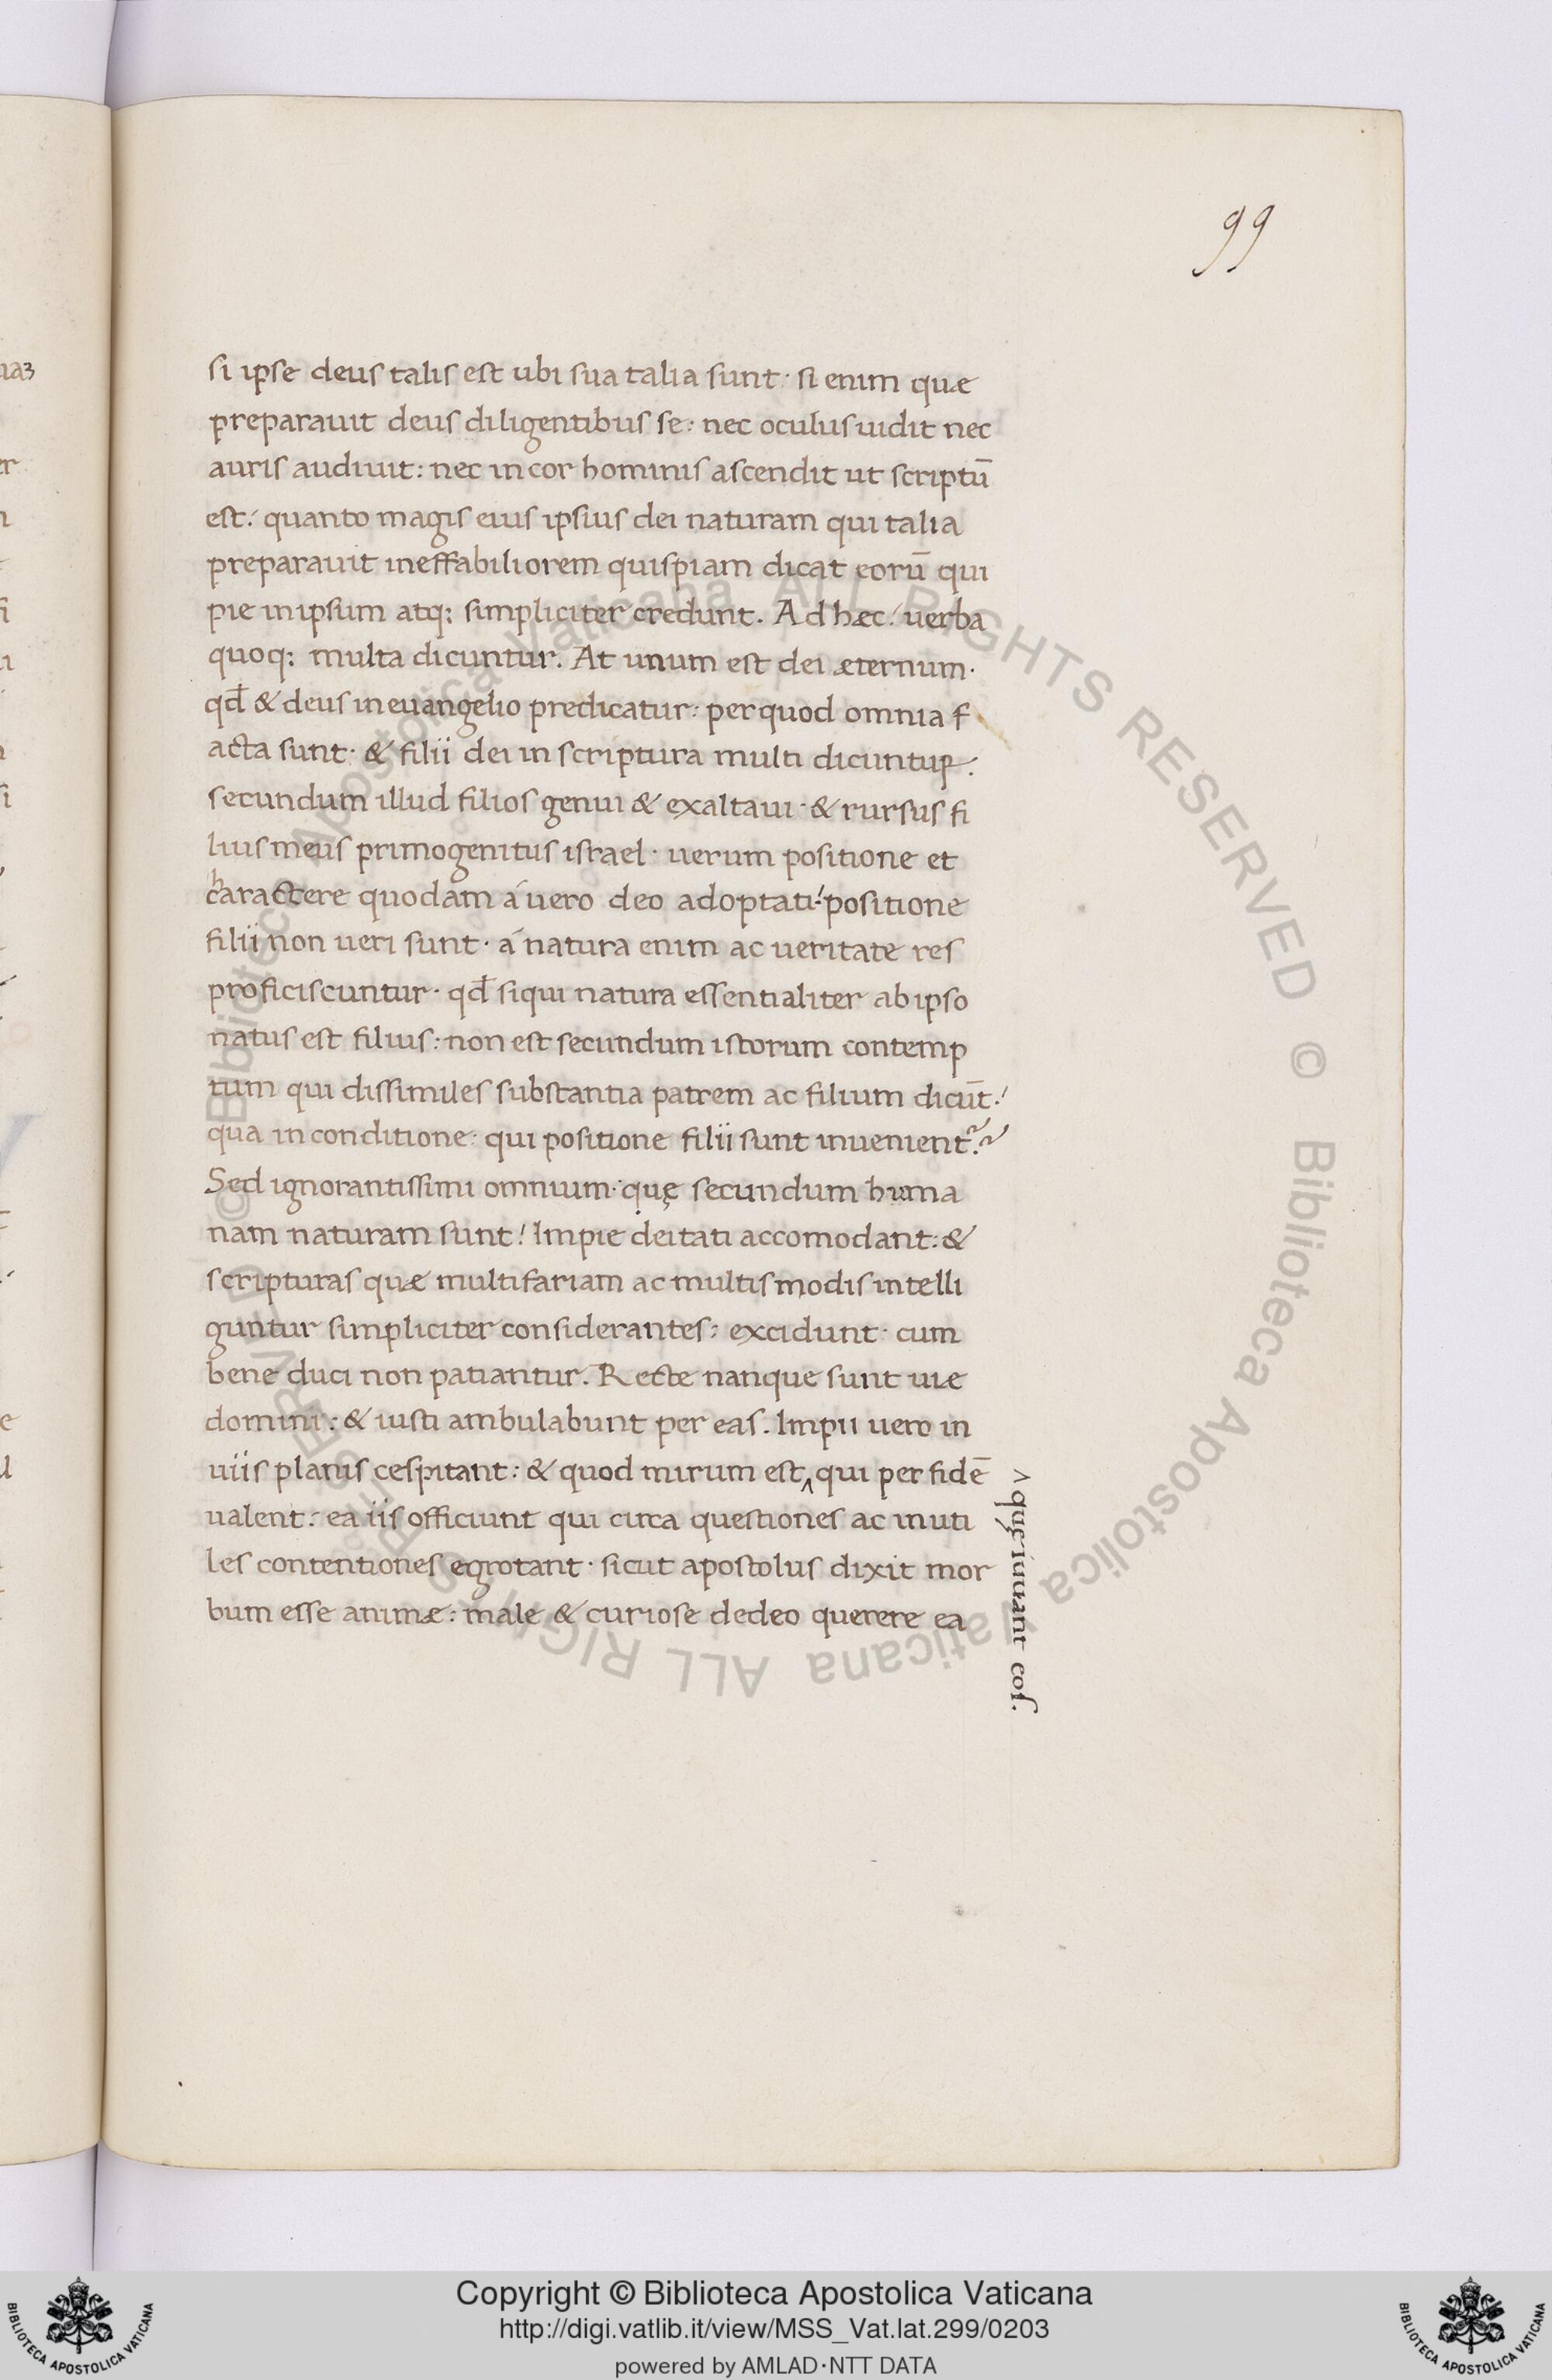 99
si ipse deus talis est ubi sua talia sunt· si enim quæ
preparauit deus diligentibus se: nec oculus uidit nec
auris audiuit: nec in cor hominis ascendit ut scriptū
est: quanto magis eius ipsius dei naturam qui talia
preparauit ineffabiliorem quispiam dicat eorū qui
pie in ipsum atq; simpliciter credunt. Ad hæc: uerba
quoq; multa dicuntur. At unum est dei æternum·
qđ & deus in euangelio predicatur: per quod omnia f
acta sunt· & filii dei in scriptura multi dicuntur:
secundum illud filios genui & exaltaui· & rursus fi
lius meus primogenitus israel· uerum positione et
charactere quodam á uero deo adoptati: positione
filii non ueri sunt· á natura enim ac ueritate res
proficiscuntur· qđ siqui natura essentialiter ab ipso
natus est filius: non est secundum istorum contemp
tum qui dissimiles substantia patrem ac filium dicūt:
qua in conditione: qui positione filii sunt inuenient᷑:
Sed ignorantissimi omnium: quę secundum huma
nam naturam sunt! Impie deitati accomodant: &
scripturas quæ multifariam ac multis modis intelli
guntur simpliciter considerantes: excidunt· cum
bene duci non patiantur. Recte nanque sunt uiæ
domini: & iusti ambulabunt per eas. Impii uero in
uiis planis cespitant: & quod mirum est‸ qui per fidē
ualent: ea iis officiunt qui circa questiones ac inuti
les contentiones egrotant· sicut apostolus dixit mor
bum esse animæ: male & curiose de deo querere ea
> quę iuuant eos.
Copyright © Biblioteca Apostolica Vaticana
http://digi.vatlib.it/view/MSS_Vat.lat.299/0203
powered by AMLAD·NTT DATA
BIBLIOTECA APOSTOLICA VATICANA
BIBLIOTECA APOSTOLICA VATICANA
© Biblioteca Apostolica Vaticana ALL RIGHTS RESERVED © Biblioteca Apostolica Vaticana ALL RIGHTS RESERVED